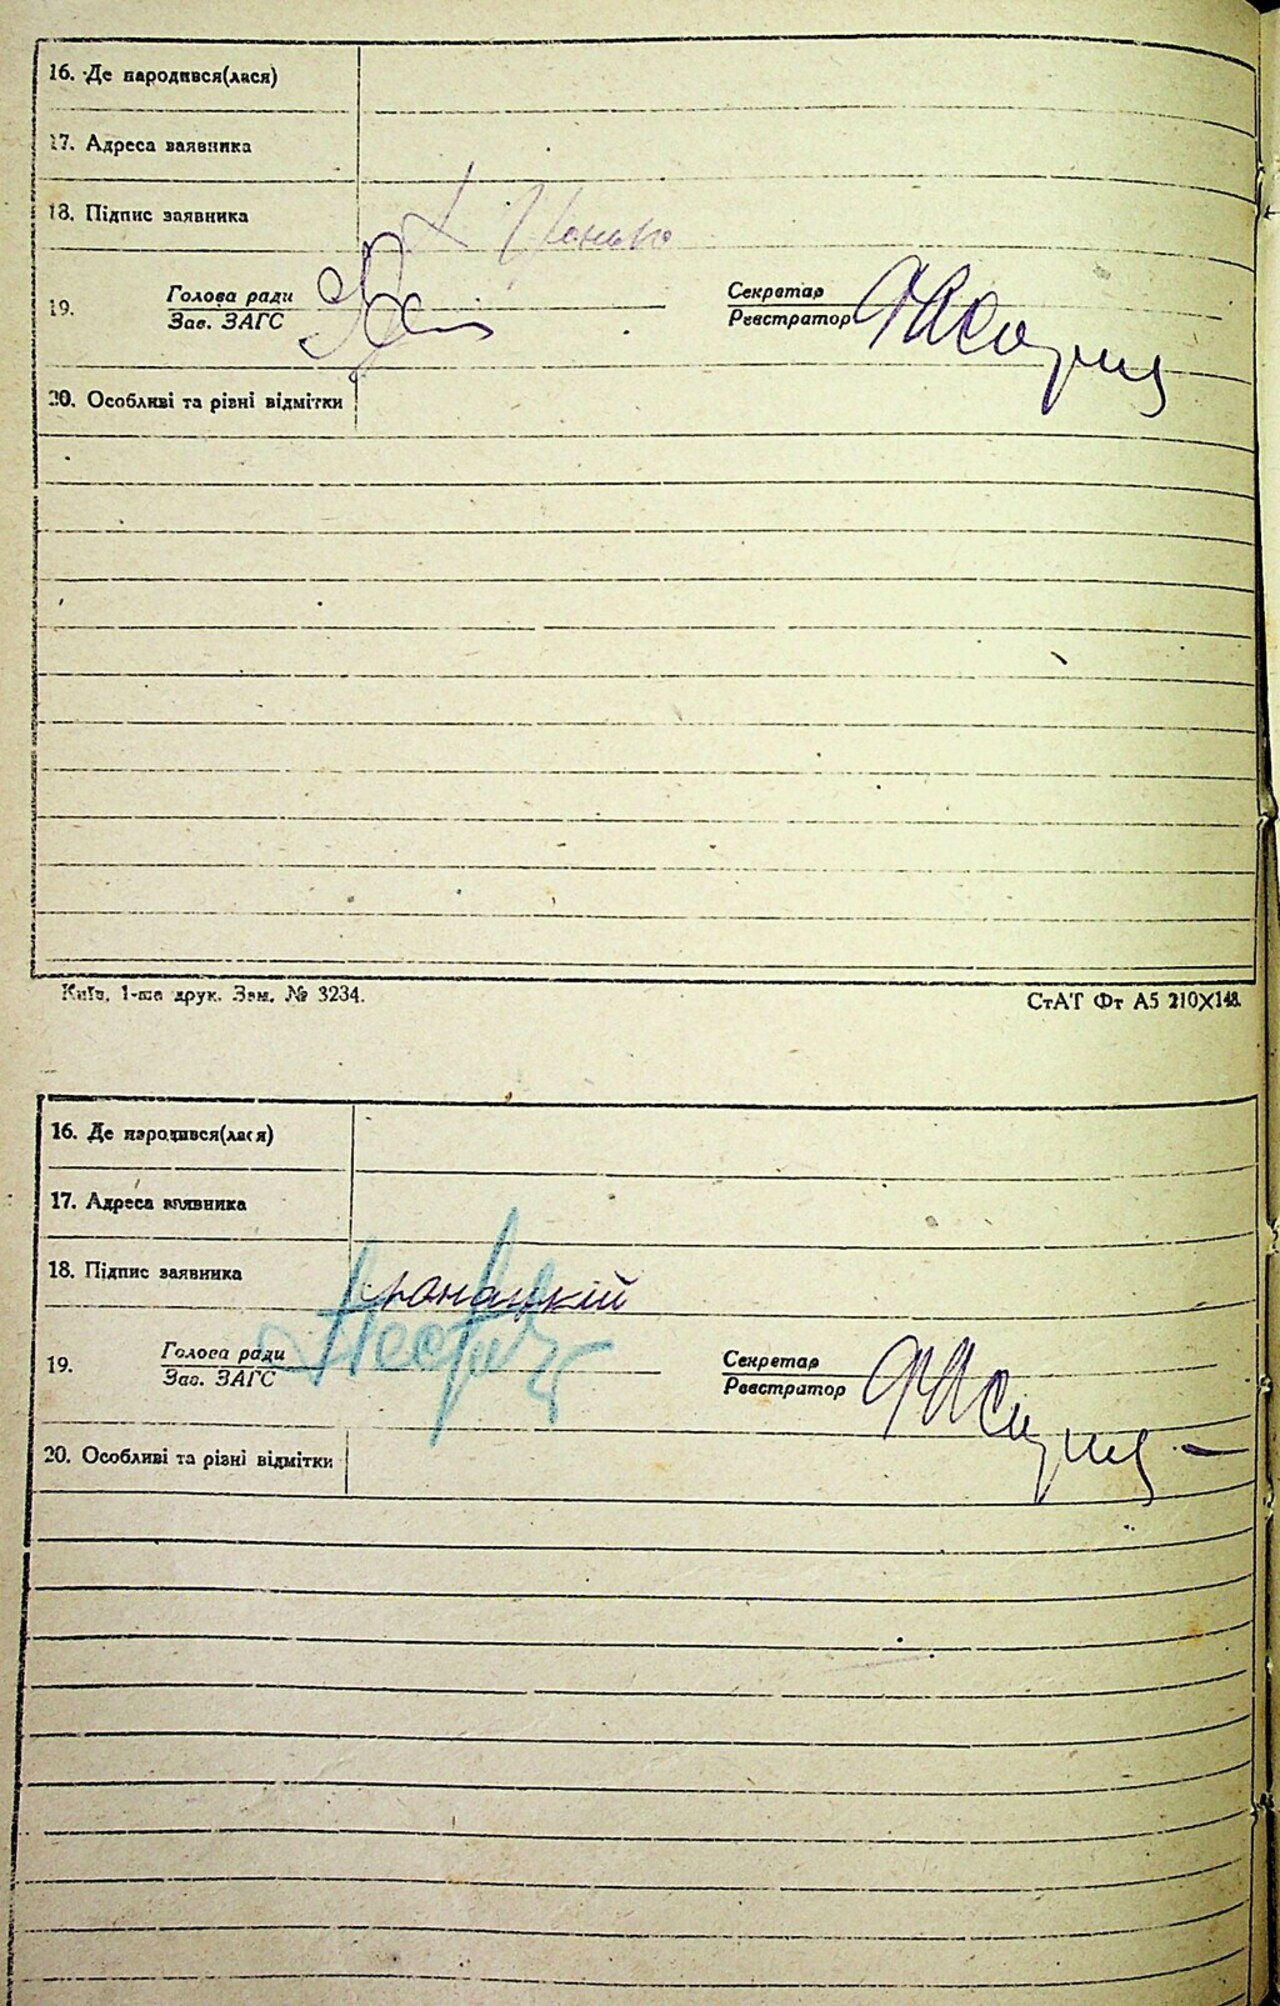 16. Де народився(лася)
17. Адреса заявника
18. Підпис заявника
19. Голова ради
Зав. ЗАГС
Секретар
Реєстратор
20. Особливі та різні відмітки
Київ, 1-ша друк. Зам. № 3234.
СтАТ Фт А5 210X148.
16. Де народився(лася)
17. Адреса заявника
18. Підпис заявника
19. Голова ради
Зав. ЗАГС
Секретар
Реєстратор
20. Особливі та різні відмітки